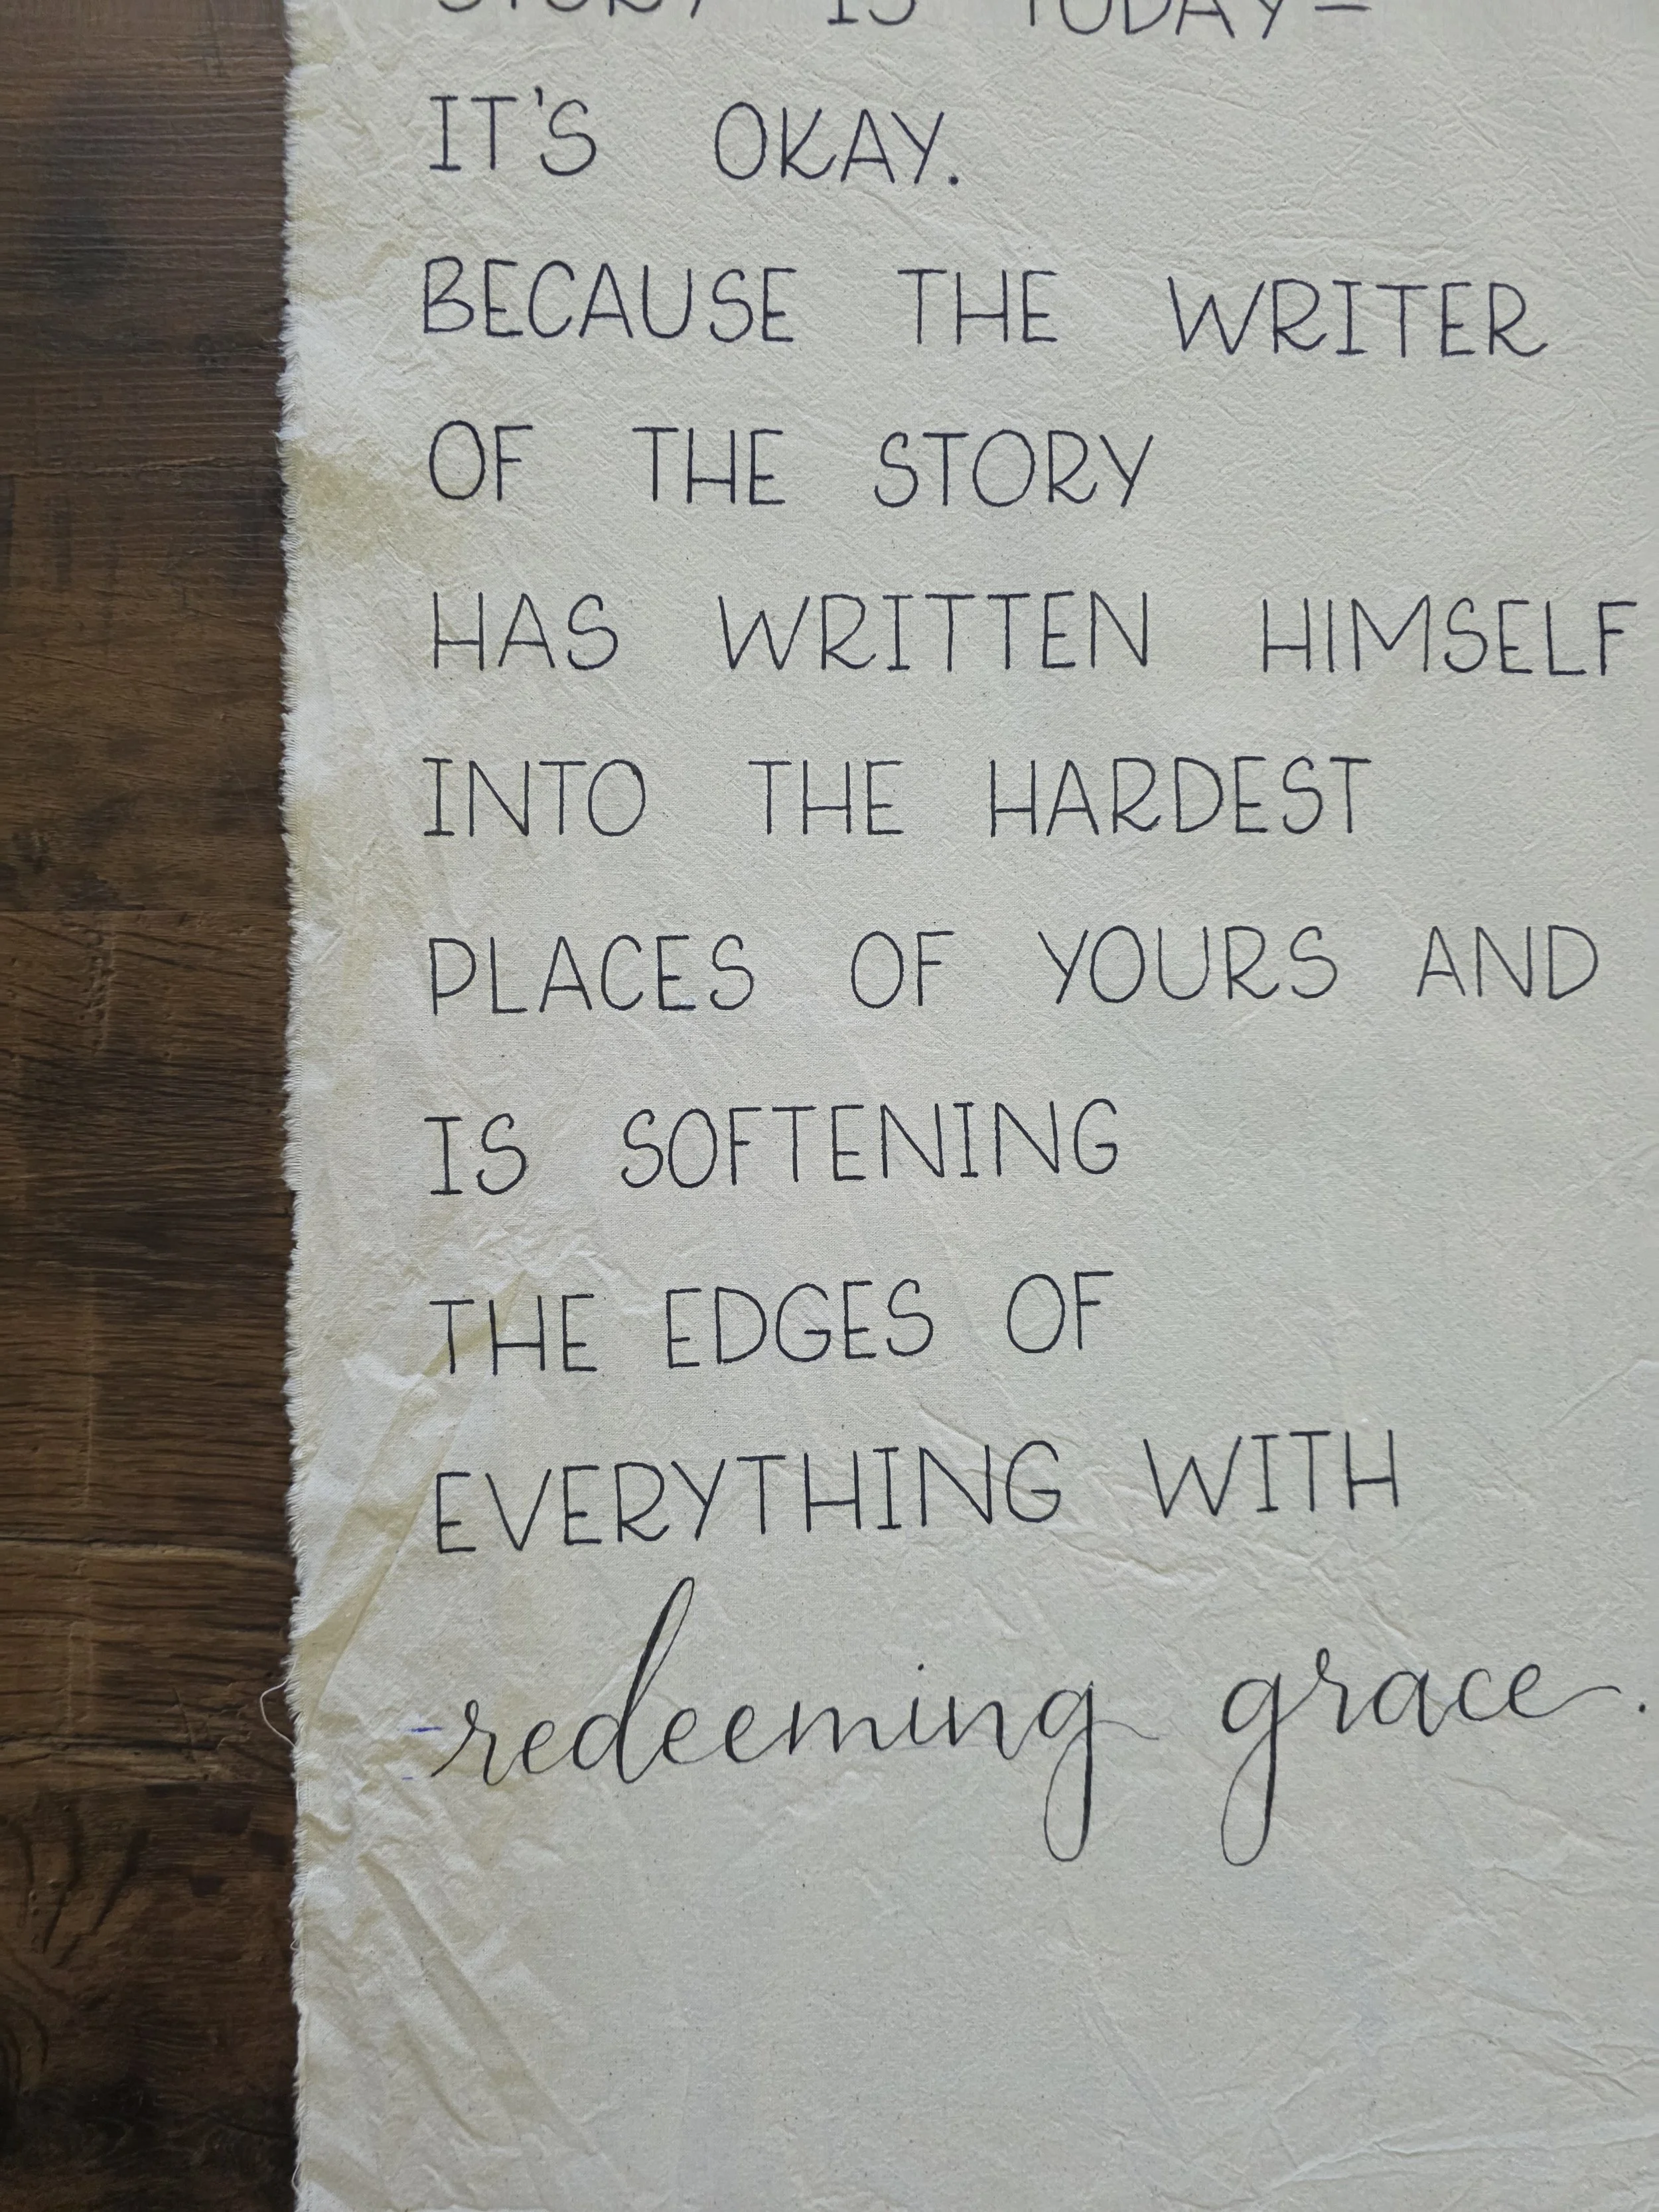 STORY IS TODAY—
IT'S OKAY.
BECAUSE THE WRITER
OF THE STORY
HAS WRITTEN HIMSELF
INTO THE HARDEST
PLACES OF YOURS AND
IS SOFTENING
THE EDGES OF
EVERYTHING WITH
redeeming grace.